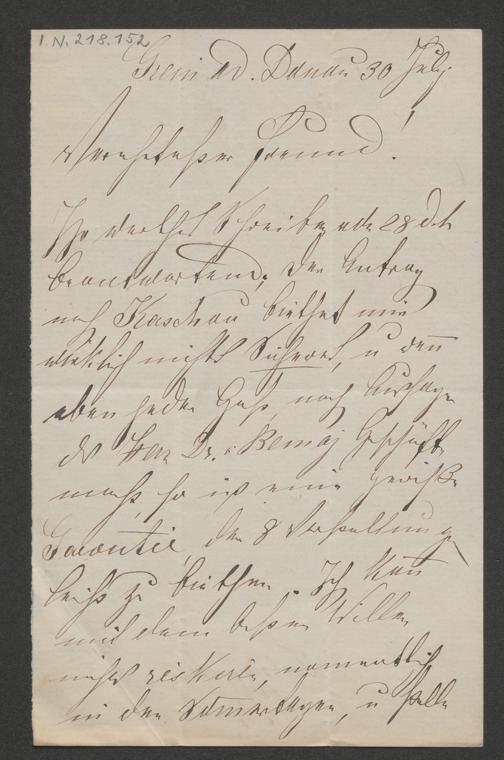 I.N. 218.152
Grein ad. Donau 30 July
Verehrtester Freund!
Ihr werthes Schreiben vom 28 dt
beantwortend, der Antrag
nach Kaschau biethet mir
wirklich nichts Sicheres, u wenn
eben jeder Gast, nach Aussage
des Herr Dr. v Remaj Geschäfte
macht, so ist eine gewisse
Garantie, der 8 Vorstellungen
leicht zu biethen. Ich kann
mit dem besten Willen
nichts riskiren, namentlich
in den Sommertagen, u stelle